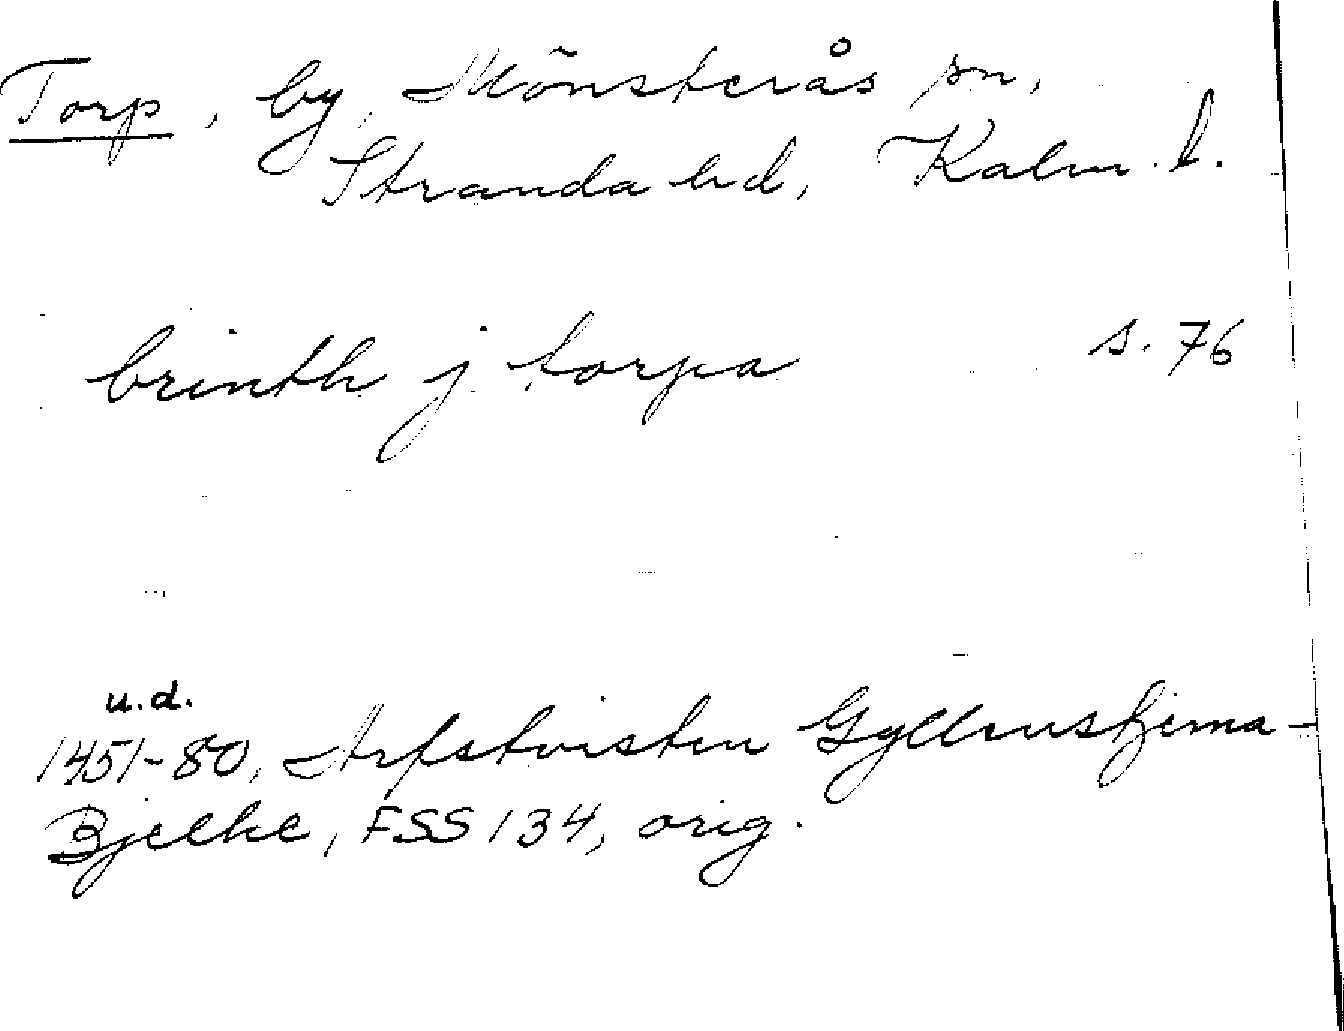 Torp, by, Mõnsterås sn,
Stranda hd, Kalm. l.
brinth j torpa s. 76
u.d.
1451-80, Arfstvisten Gyllenstjerna-
Bjelke, FSS 134, orig.